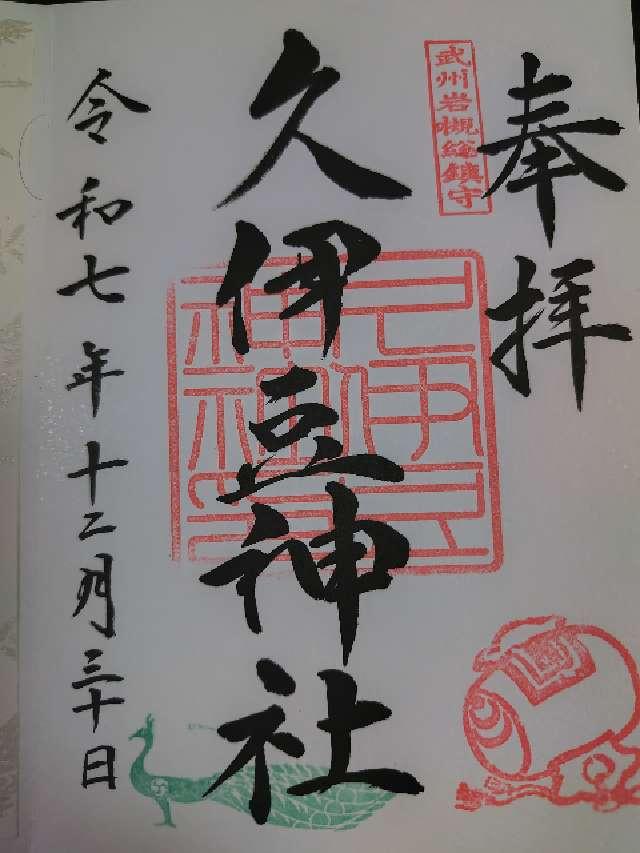 奉拝
武州岩槻総鎮守
久伊豆神社
令和七年十二月三十日